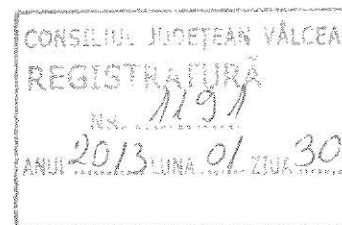 CONSILIUL JUDEŢEAN VÂLCEA
REGISTRATURĂ
NR. 1191
ANUL 2013 LUNA 01 ZIUA 30